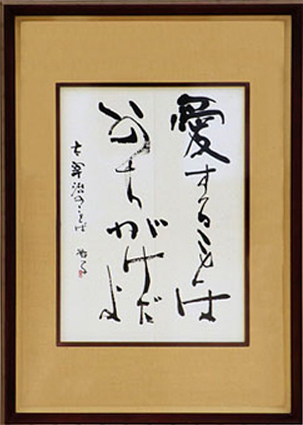 愛することは
いのちがけだよ
太宰治のことば